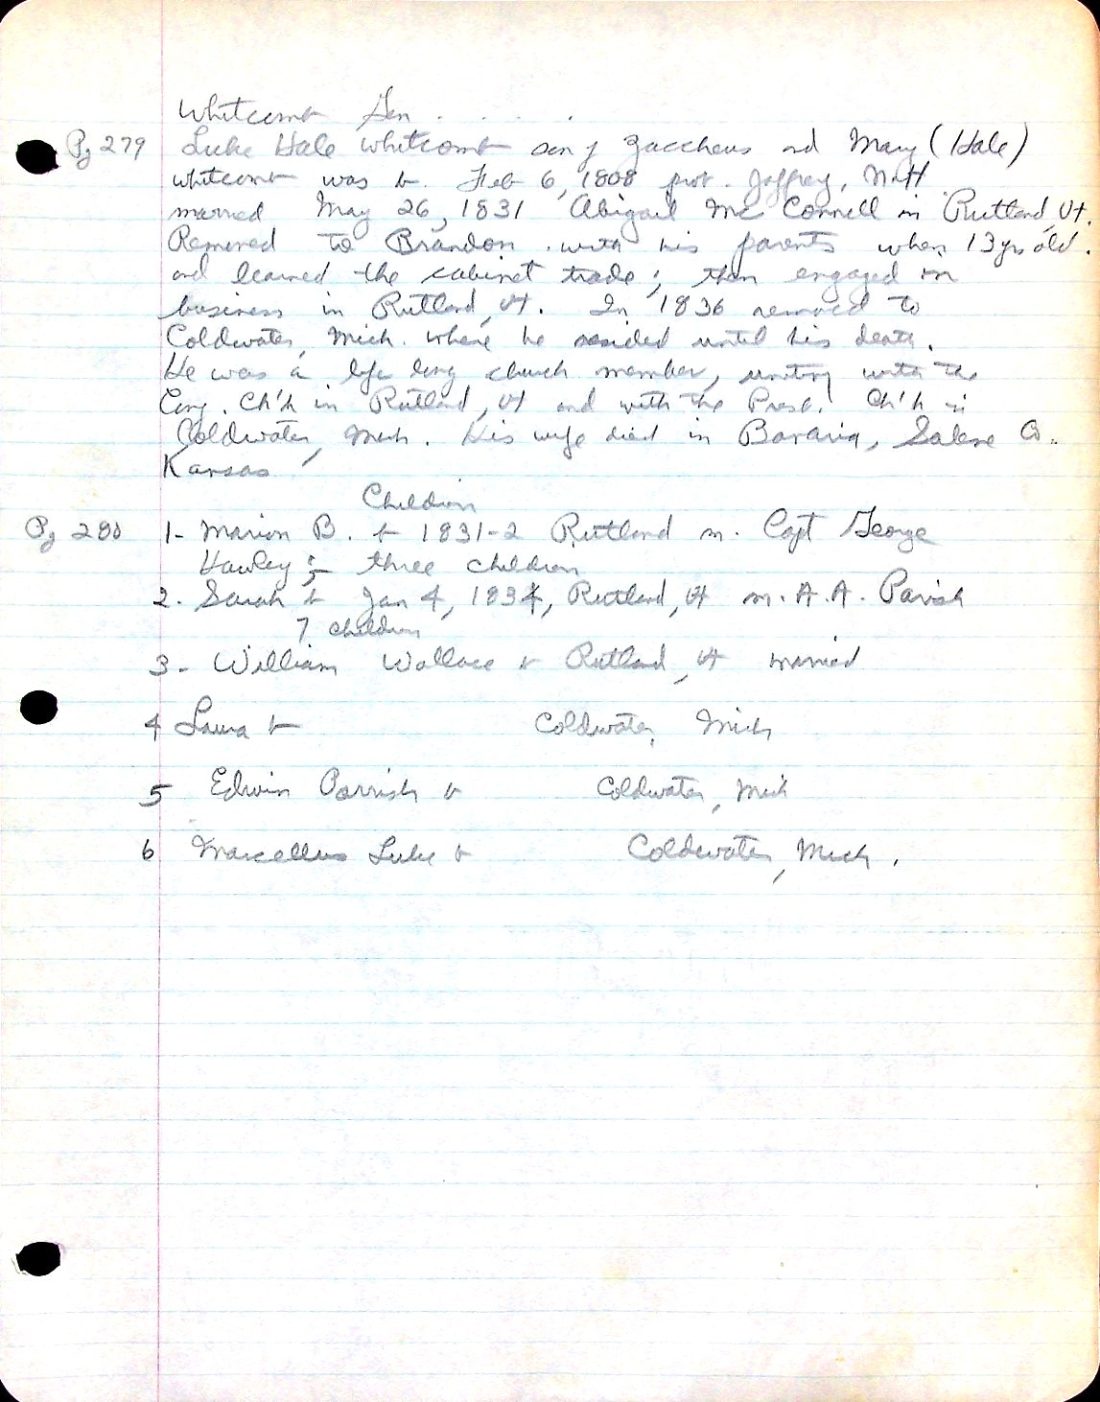 Whitcomb Gen. . . . .
Pg 279 Luke Hale Whitcomb son of Zaccheus and Mary (Hale)
Whitcomb was b. Feb 6, 1808 prob. Jaffrey, N.H.
married May 26, 1831 Abigail Mc Connell in Rutland, Vt.
Removed to Brandon with his parents when 13 yrs old.
and learned the cabinet trade; then engaged in
business in Rutland, Vt. In 1836 removed to
Coldwater, Mich. where he resided until his death.
He was a life long church member, uniting with the
Cong. Ch'h in Rutland, Vt and with the Presb. Ch'h in
Coldwater, Mich. His wife died in Bavaria, Salene Co.
Kansas
Children
Pg 280 1- Marion B. b 1831-2 Rutland m. Capt George
Hawley; three children
2. Sarah b Jan 4, 1834, Rutland, Vt m. A.A. Parish
7 children
3- William Wallace b Rutland, Vt married
4 Laura b Coldwater, Mich
5 Edwin Parrish b Coldwater, Mich
6 Marcellus Luke b Coldwater, Mich.